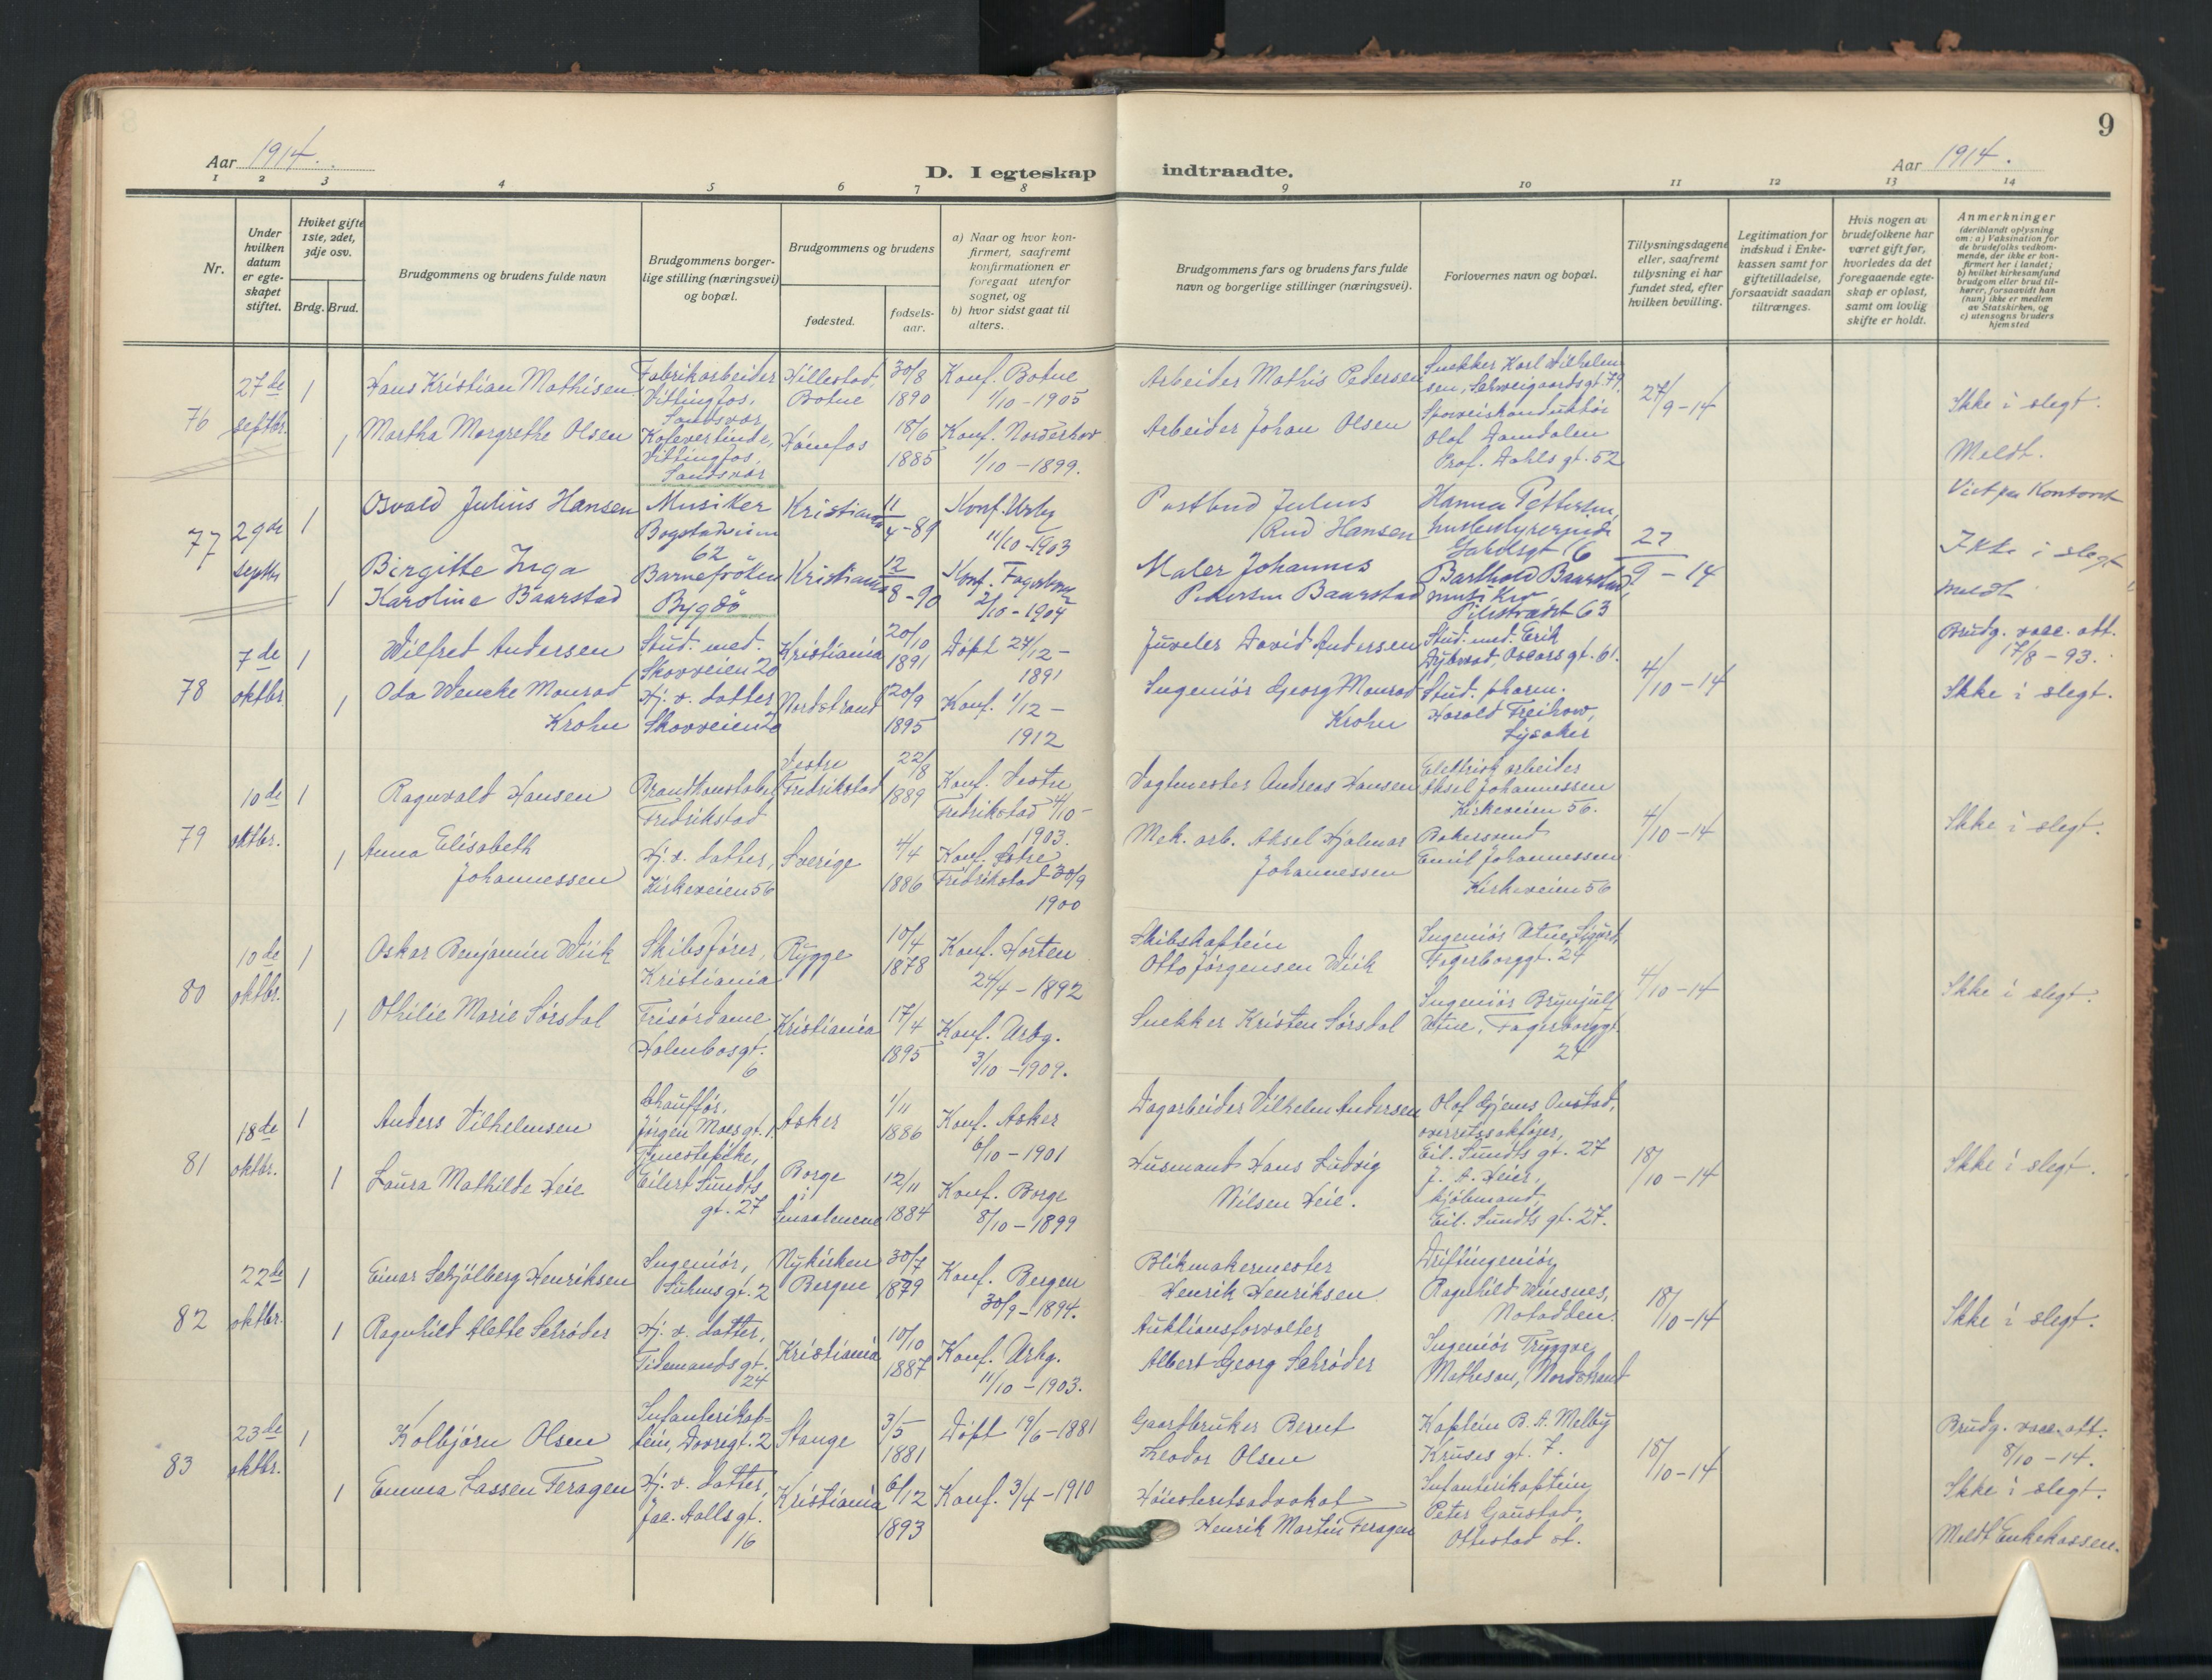 9
Aar 1914.
D. I egteskap indtraadte.
Aar 1914.
1 2 3 4 5 6 7 8 9 10 11 12 13 14
Nr.
Under
hvilken
datum
er egte-
skapet
stiftet.
Hviket gifte
1ste, 2det,
3dje osv.
Brdg. Brud.
Brudgommens og brudens fulde navn
Brudgommens borger-
lige stilling (næringsvei)
og bopæl.
Brudgommens og brudens
fødested.
fødsels-
aar.
a) Naar og hvor kon-
firmert, saafremt
konfirmationen er
foregaat utenfor
sognet, og
b) hvor sidst gaat til
alters.
Brudgommens fars og brudens fars fulde
navn og borgerlige stillinger (næringsvei).
Forlovernes navn og bopæl.
Tillysningsdagene
eller, saafremt
tillysning ei har
fundet sted, efter
hvilken bevilling.
Legitimation for
indskud i Enke-
kassen samt for
giftetilladelse,
forsaavidt saadan
tiltrænges.
Hvis nogen av
brudefolkene har
været gift før,
hvorledes da det
foregaaende egte-
skap er opløst,
samt om lovlig
skifte er holdt.
Anmerkninger
(deriblandt oplysning
om: a) Vaksination for
de brudefolks vedkom-
mende, der ikke er kon-
firmert her i landet;
b) hvilket kirkesamfund
brudgom eller brud til-
hører, forsaavidt han
(hun) ikke er medlem
av Statskirken, og
c) utensogns bruders
hjemsted
76
27de
septbr.
1
Hans Kristian Mathisen
Fabrikarbeider
Vittingfos,
Sandsvær
Hillestad,
Botne
30/8
1890
Konf. Botne
1/10 - 1905
Arbeider Mathis Pedersen
Snekker Karl Wilhelm
sen, Schweigaardsgt. 79
27/9 - 14
Ikke i slegt.
1
Martha Margrethe Olsen
Vittingfos,
Sandsvær
Hönefos
18/6
1885
Konf. Norderhov
1/10 - 1899.
Arbeider Johan Olsen
Sporveiskonduktör
Olaf Damdalen
Prof. Dahls gt. 52
Meldt.
77
29de
septbr
1
Osvald Julius Hansen
Musiker
Bogstadveien
62
Kristiania
11
4 - 89
Konf. Urbg
11/10 - 1903
Postbud Julius
Rud Hansen
Hanna Pettersen,
husbestyrerinde
27
9 - 14
1
Birgitte Inga
Karoline Baarstad
Barnefröken
Bygdö
Kristiania
12
8 - 90
2/10 - 1904
Maler Johannes
Pedersen Baarstad
Barthold Baarstad,
musiker
Pilestrædet 63
Ikke i slegt
meldt
78
7de
oktbr
1
Wilfred Andersen
Stud. med.
Skovveien 20
Kristiania
20/10
1891
Döpt 27/12 -
1891
Juveler David Andersen
Stud. med. Erik
Dybwad, Oscars gt. 61.
4/10 - 14
Brudg. vacc. att.
17/8 - 93.
1
Oda Wencke Monrad
Krohn
Hj. v. datter,
Skovveien 20
Nordstrand
20/9
1895
Konf. 1/12 -
1912
Ingeniör Georg Monrad
Krohn
Stud. pharm.
Harald Freihow,
Lysaker
Ikke i slegt.
79
10de
oktbr.
1
Ragnvald Hansen
Brandkonstabel,
Fredrikstad
Vestre
Fredrikstad
22/8
1889
Konf. Vestre
Fredrikstad 4/10 -
1903.
Vagtmester Andreas Hansen
Elektrisk arbeider
Aksel Johannessen
Kirkeveien 56.
4/10 - 14
Ikke i slegt.
1
Anna Elisabeth
Johannessen
Hj. v. datter,
Kirkeveien 56
Sverige
4/4
1886
Konf. Östre
Fredrikstad 30/9
1900
Mek. arb. Aksel Hjalmar
Johannessen
Bakersvend
Emil Johannessen
Kirkeveien 56
80
10de
oktbr.
1
Oskar Benjamin Wiik
Skibsförer,
Kristiania
Rygge
10/4
1878
Konf. Horten
24/4 - 1892
Skibskaptein
Otto Jörgensen Wiik
Ingeniör Utne, Sigurd,
Fagerborggt. 24
4/10 - 14
Ikke i slegt.
1
Othilie Marie Sörsdal
Frisördame
Holmboesgt.
6
Kristiania
17/4
1895
Konf. Urbg.
3/10 - 1909.
Snekker Kristen Sörsdal
Ingeniör Brynjulf
Utne, Fagerborggt.
24
81
18de
oktbr.
1
Anders Vilhelmsen
Chaufför,
Jörgen Moes gt. 1.
Asker
1/11
1886
Konf. Asker
6/10 - 1901
Dagarbeider Vilhelm Andersen
Olaf Gjems Onstad,
overretssakförer,
Eil. Sundts gt. 27
18/10 - 14
Ikke i slegt.
1
Laura Mathilde Heie
Tjenestepike,
Eilert Sundts
gt. 27
Borge
i
Smaalenene
12/11
1884
Konf. Borge
8/10 - 1899
Husmand Hans Ludvig
Nilsen Heie.
J. A. Heier,
kjöbmand,
Eil. Sundts gt. 27.
82
22de
oktbr.
1
Einar Schjölberg Henriksen
Ingeniör,
Suhmsgt. 2
Nykirken
Bergen
30/7
1879
Konf. Bergen
30/9 - 1894.
Blikmakermester
Henrik Henriksen
Driftingeniör
Ragnhild Winsnes,
Notodden.
18/10 - 14
Ikke i slegt.
1
Ragnhild Alette Schröder
Hj. v. datter,
Tidemandsgt.
24
Kristiania
10/10
1887
Konf. Urbg.
11/10 - 1903.
Auktionsforvalter
Albert Georg Schröder
Ingeniör Tryggve
Mathesen, Nordstrand
83
23de
oktbr.
1
Kolbjörn Olsen
Infanterikap-
tein, Dovregt. 2
Stange
3/5
1881
Döpt 19/6 - 1881
Gaardbruker Bernt
Theodor Olsen
Kaptein B. A. Melby
Kruses gt. 7.
18/10 - 14
Brudg. vacc. att.
8/10 - 14.
1
Emma Lassen Feragen
Hj. v. datter,
Jac. Aalls gt.
16
Kristiania
6/12
1893
Konf. 3/4 - 1910
Höiesteretsadvokat
Henrik Martin Feragen
Infanterikaptein
Peter Gaustad,
Ottestad st.
Ikke i slegt.
Meldt Enkekassen.